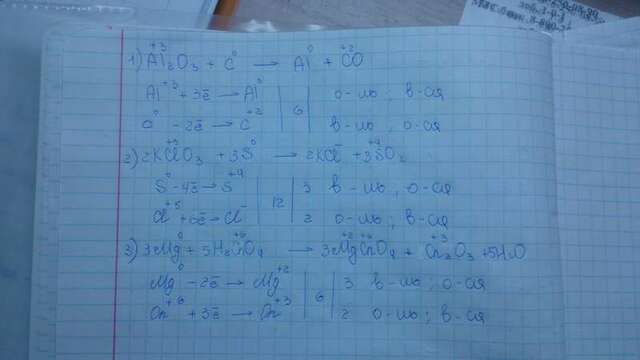 1) Al₂⁺³O₃ + C⁰ → Al⁰ + C⁺²O
Al⁺³ + 3ē → Al⁰ | 6 | о-ль ; в-ся
C⁰ - 2ē → C⁺² | | в-ль ; о-ся
2) 2KCl⁺⁵O₃ + 3S⁰ → 2KCl⁻ + 3S⁺⁴O₂
S⁰ - 4ē → S⁺⁴ | 12 | 3 в-ль ; о-ся
Cl⁺⁵ + 6ē → Cl⁻ | | 2 о-ль ; в-ся
3) 3Mg⁰ + 5H₂Cr⁺⁶O₄ → 3Mg⁺²Cr⁺⁶O₄ + Cr₂⁺³O₃ + 5H₂O
Mg⁰ - 2ē → Mg⁺² | 6 | 3 в-ль ; о-ся
Cr⁺⁶ + 3ē → Cr⁺³ | | 2 о-ль ; в-ся